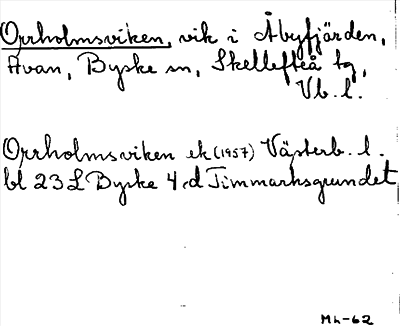 Orrholmsviken, vik i Åbyfjärden,
Avan, Byske sn, Skellefteå tg,
Vb. l.
Orrholmsviken ek (1957) Västerb. l.
bl 23 L Byske 4 d Timmarhsgrundet
Mh-62